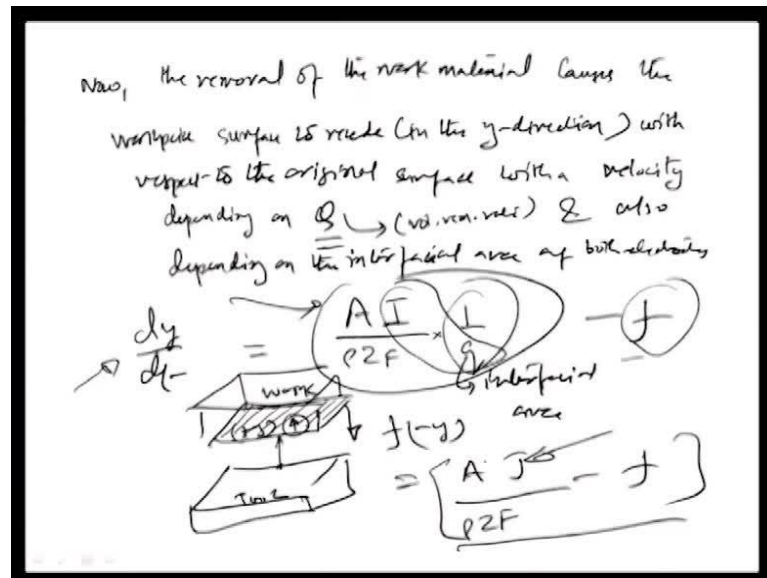 Now, the removal of the work material causes the
workpiece surface to recede (in the y-direction) with
respect to the original surface with a velocity
depending on Q → (vol. rem. rate) & also
depending on the interfacial area of both electrodes
dy/dt = A I / ρZF × 1/a - f
interfacial
area
work
f(-y)
Tool
= [ A J / ρZF - f ]